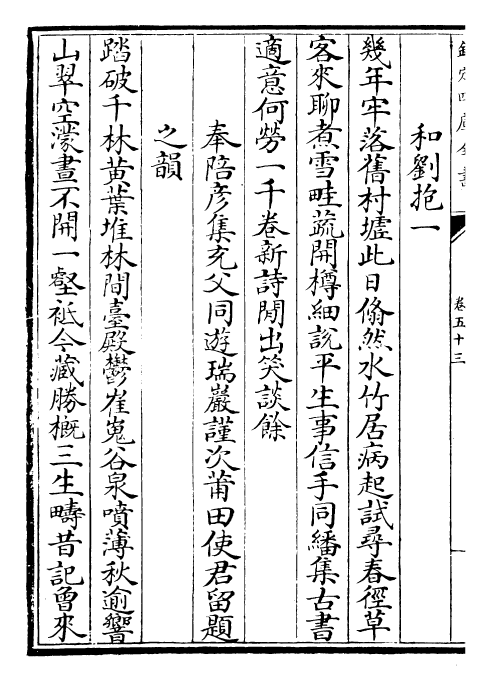 欽定四庫全書
卷五十三
和劉抱一
幾年牢落舊村墟此日翛然水竹居病起試尋春徑草
客來聊煮雪畦蔬開樽細說平生事信手同繙集古書
適意何勞一千卷新詩閒出笑談餘
奉陪彥集充父同遊瑞巖謹次莆田使君留題
之韻
踏破千林黄葉堆林間臺殿鬱崔嵬谷泉噴薄秋逾響
山翠空濛晝不開一壑祗今藏勝概三生疇昔記曾來